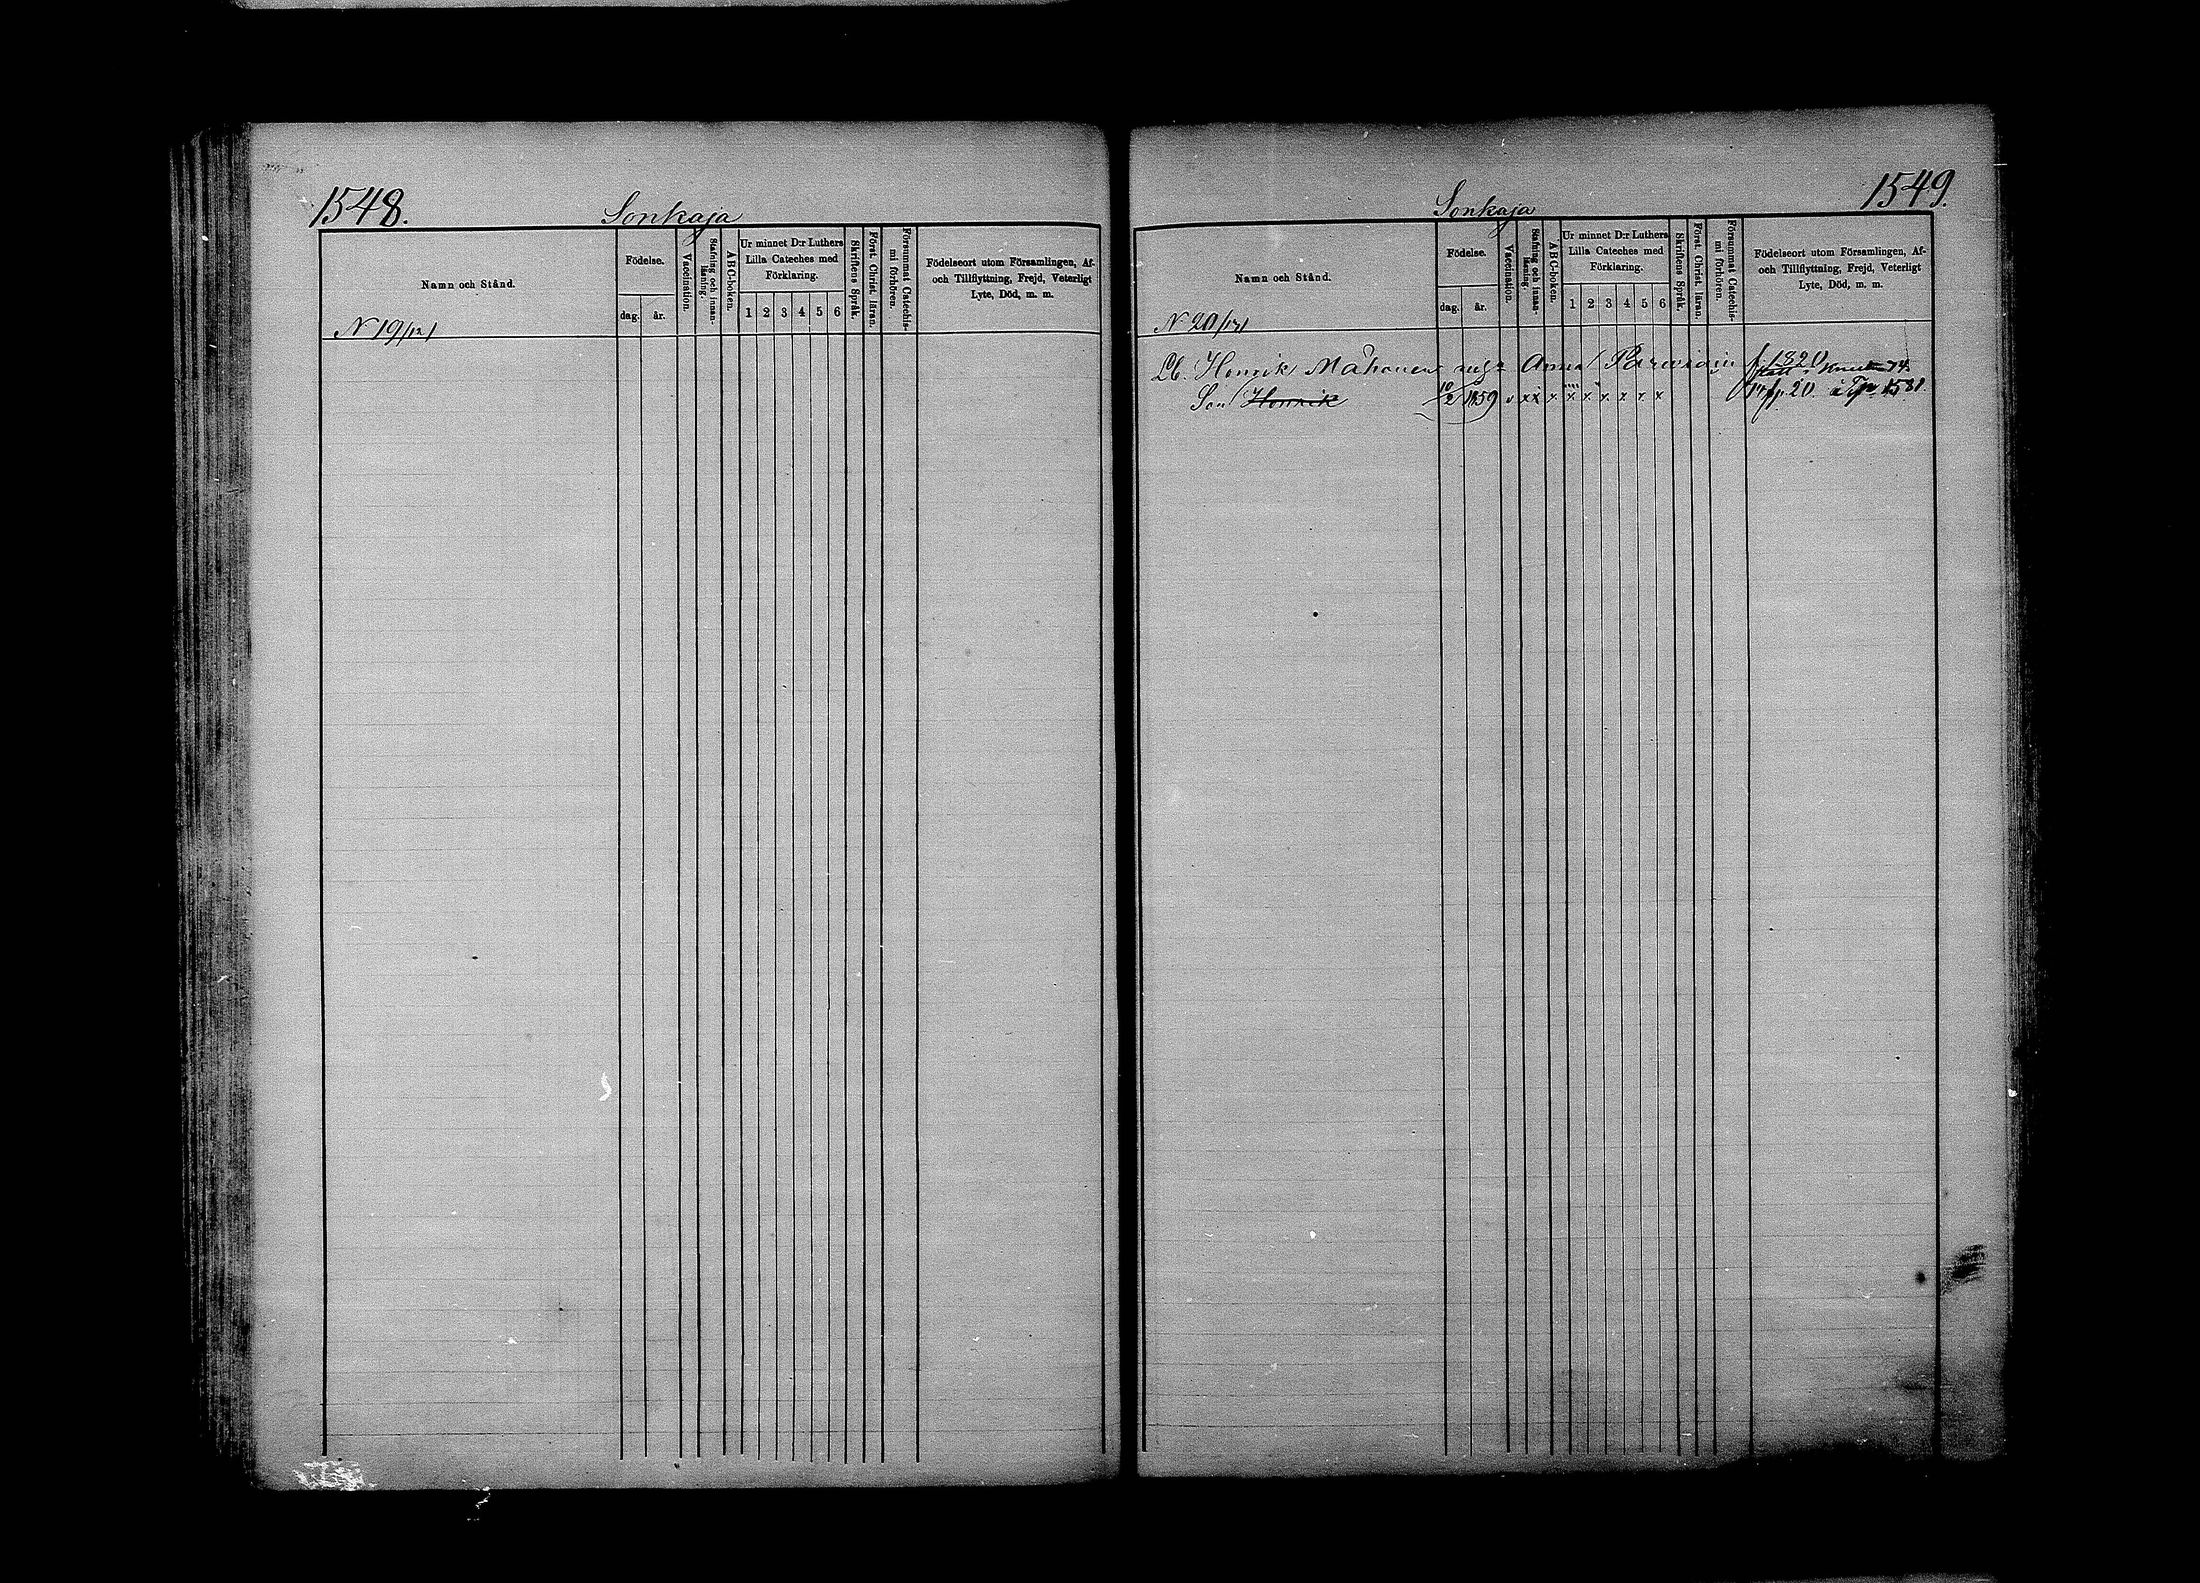 1548.
Sonkaja
Namn och Stånd.
Födelse.
dag.
år.
Vaccination.
Stafning och innan-läsning.
ABC-boken.
Ur minnet D:r Luthers
Lilla Cateches med
Förklaring.
1 2 3 4 5 6
Skriftens Språk.
Först. Christ. läran.
Försummat Catechis-
mi förhören.
Födelseort utom Församlingen, Af-
och Tillflyttning, Frejd, Veterligt
Lyte, Död, m. m.
N 19
1549.
Sonkaja
Namn och Stånd.
Födelse.
dag.
år.
Vaccination.
Stafning och innan-läsning.
ABC-boken.
Ur minnet D:r Luthers
Lilla Cateches med
Förklaring.
1 2 3 4 5 6
Skriftens Språk.
Först. Christ. läran.
Försummat Catechis-
mi förhören.
Födelseort utom Församlingen, Af-
och Tillflyttning, Frejd, Veterligt
Lyte, Död, m. m.
N 20
Henrik Mähönen Anna f. 1820
Son Henrik 10/2 1859 v xx x x x x x x x 20 1581.